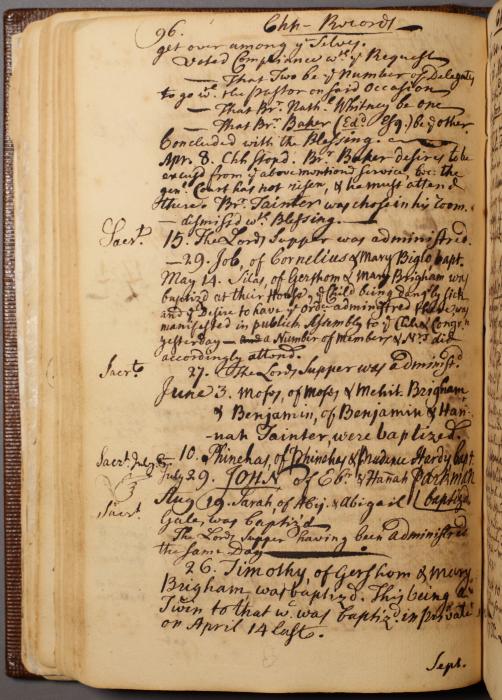 96. Chh- Records
get over among yr Selves.
Voted Compliance wth ye Request
— That Two be ye Number of Delegates
to go wth the pastor on said Occasion
— That Br. Nathl Whitney be one
— That Br. Baker (Edd Esq.) be ye other
Concluded with the Blessing.
Apr. 8. Chh stopd. Br. Baker desires to be
excus'd from ye abovemention'd Service, bec. the
genl Court has not risen, & he must attend
there. Br. Tainter was chose in his room.
— dismissed wth Blessing.
Sacrt. 15. The Lords Supper was administred.
— 29. Job, of Cornelius & Mary Biglo bapt.
May 14. Silas, of Gershom & Mary Brigham was
baptizd at their House, ye Child being dangly sick
and ye Desire to have ye Ordce administred there was
manifested in publick Assembly to ye Chh & Congn
yesterday — a Number of Members & Nrs did
accordingly attend.
Sacrt 27. The Lords Supper was administd.
June 3. Moses, of Moses & Mehit. Brigham
& Benjamin, of Benjamin & Han-
nah Tainter, were baptized.
10. Phinehas, of Phinehas & Prudence Hardy, bapt.
Sacrt July 8.
July 29. JOHN of Ebr & Hanah Parkman
baptiz'd
Aug 19. Sarah of Abij. & Abigail
Gale, was baptiz'd
Sacrt The Lords Supper having been administred
the same Day
26. Timothy, of Gershom & Mary
Brigham was baptizd. This being a
Twin to that wc was baptizd in private
on April 14 last.
Sept.